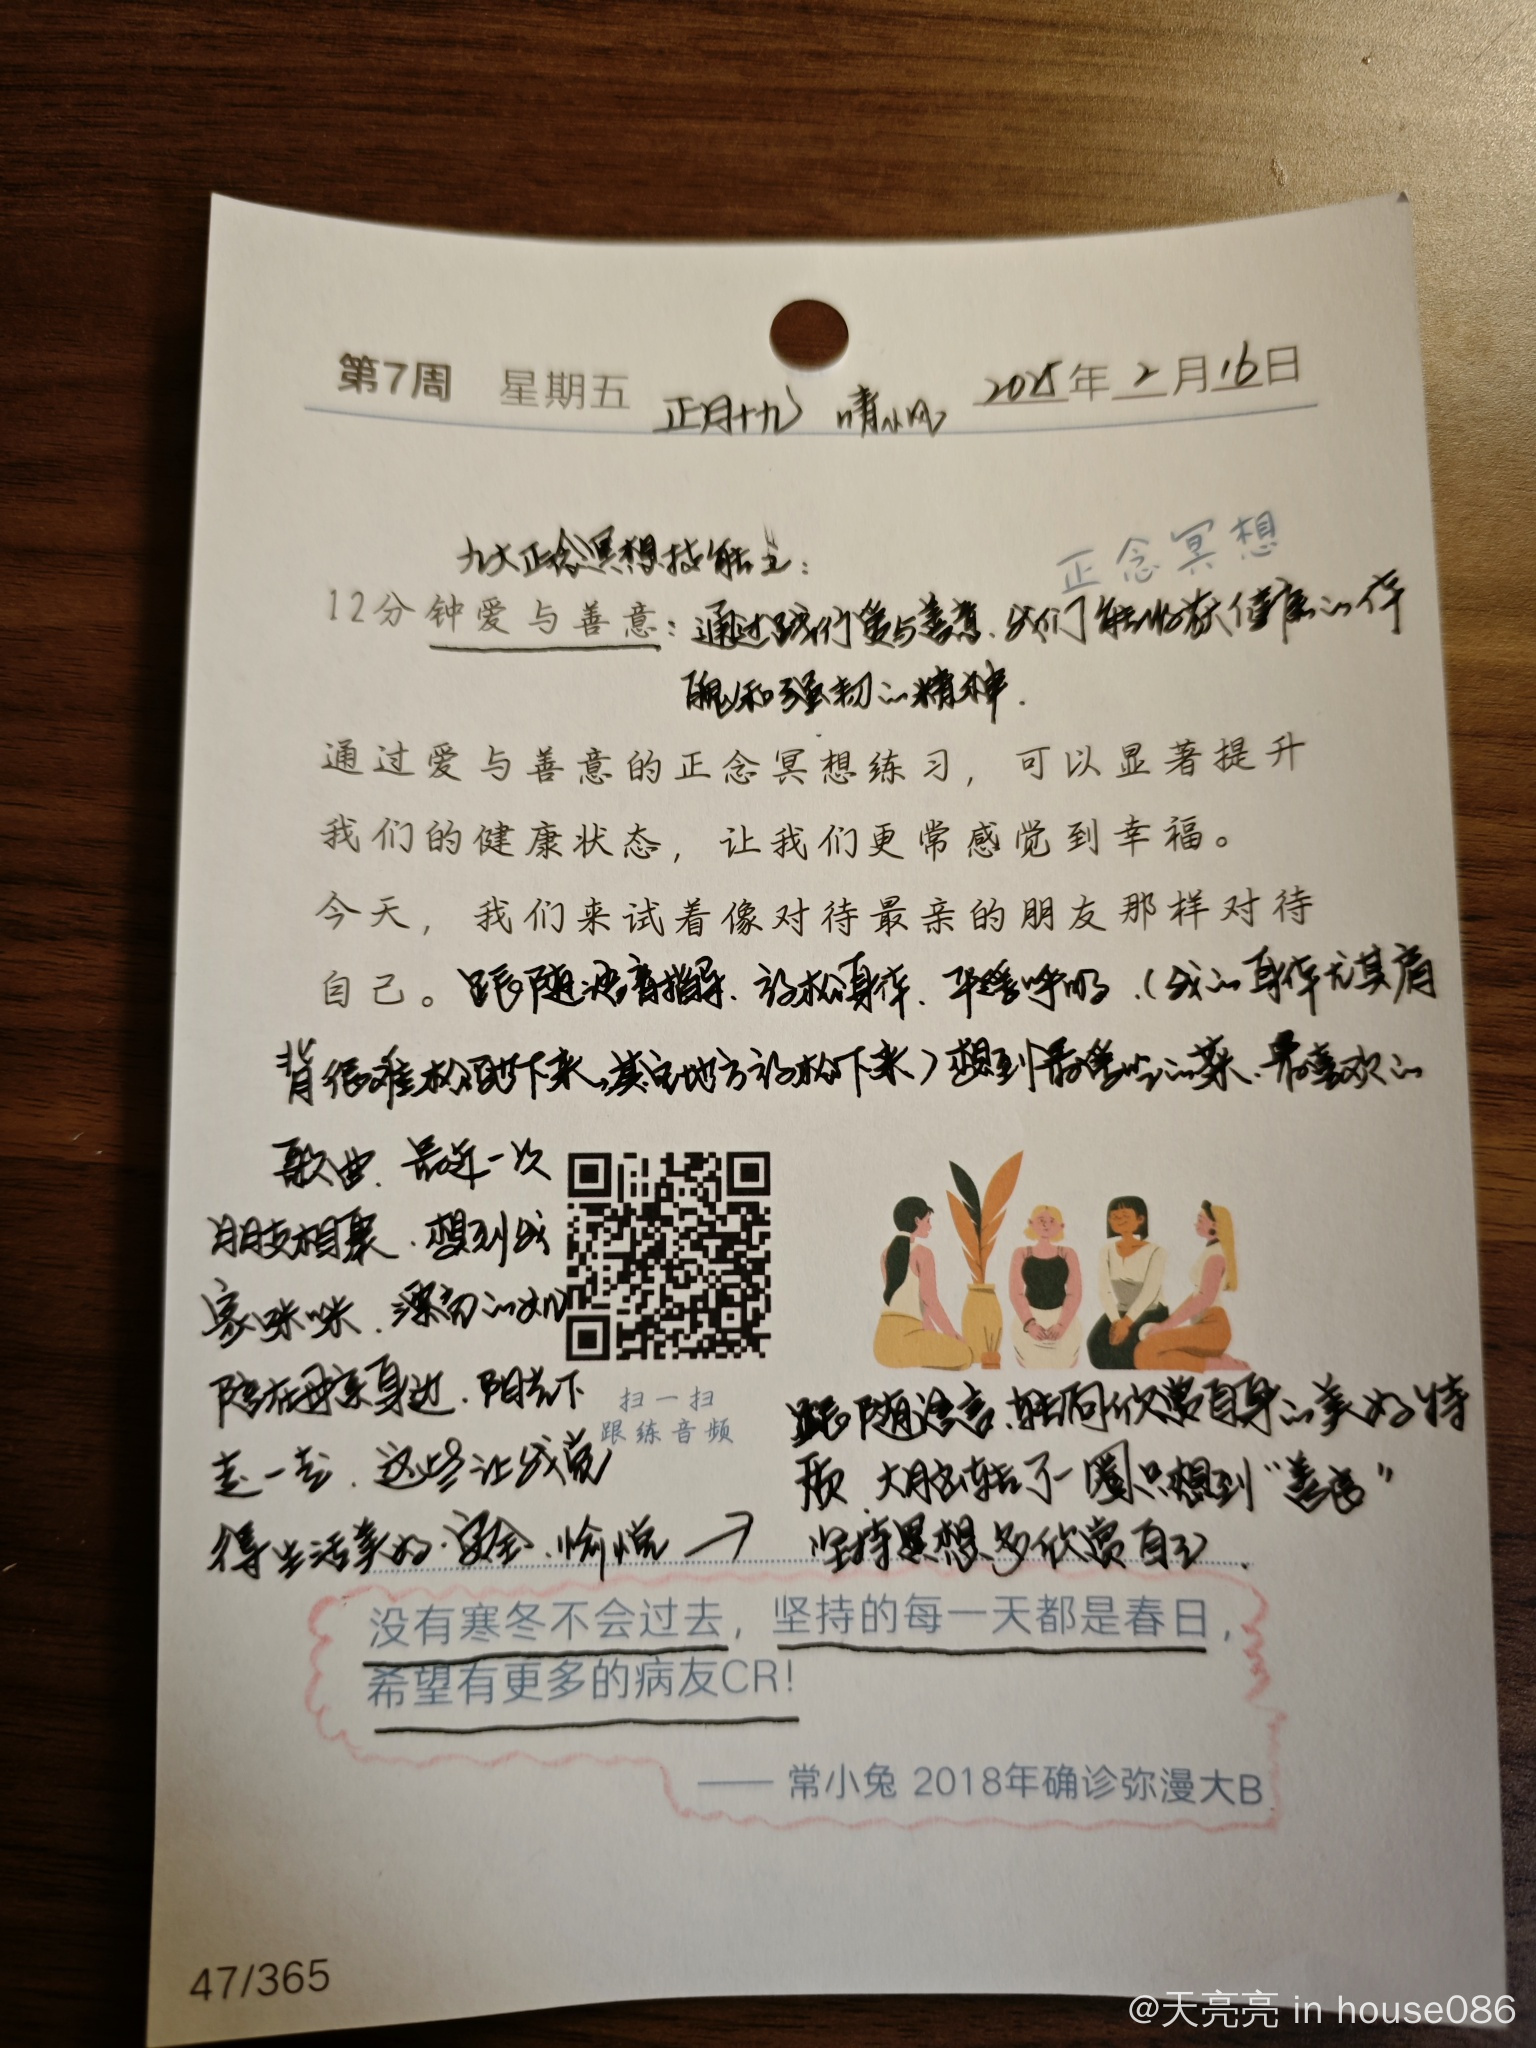 第7周 星期五 正月十九 晴小风 2025年2月16日
九大正念冥想技能之:
正念冥想
12分钟爱与善意:通过践行爱与善意.我们能收获健康的体
魄和强韧的精神.
通过爱与善意的正念冥想练习,可以显著提升
我们的健康状态,让我们更常感觉到幸福。
今天,我们来试着像对待最亲的朋友那样对待
自己。跟随语音指导.放松身体.平缓呼吸.(我的身体尤其肩
背很难松弛下来,其它地方放松下来)想到最爱吃的菜.最喜欢的
歌曲.最近一次
朋友相聚.想到我
家咪咪.漂亮的
陪在母亲身边.阳光下
走一走.这些让我觉
得生活美好.安全.愉悦→
扫一扫
跟练音频
跟随语言.转向欣赏自身的美好特
质.大脑转了一圈只想到“善良”
坚持冥想多欣赏自己.
没有寒冬不会过去,坚持的每一天都是春日,
希望有更多的病友CR!
—— 常小兔 2018年确诊弥漫大B
47/365
@天亮亮 in house086